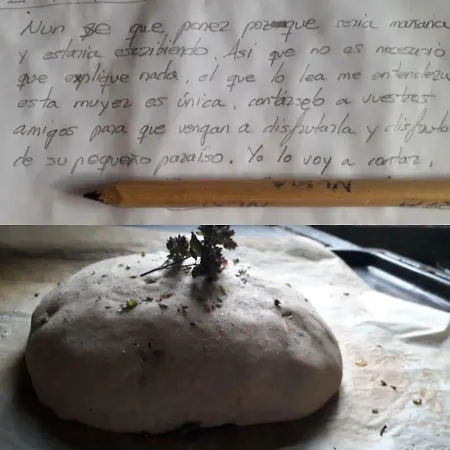 Nun se que poner porque seria mañana
y estaria escribiendo. Asi que no es necesario
que explique nada, el que lo lea me entendera
esta muyer es única, contárselo a vuestros
amigos para que vengan a disfrutarla y disfrutar
de su pequeño paraíso. Yo lo voy a contar.